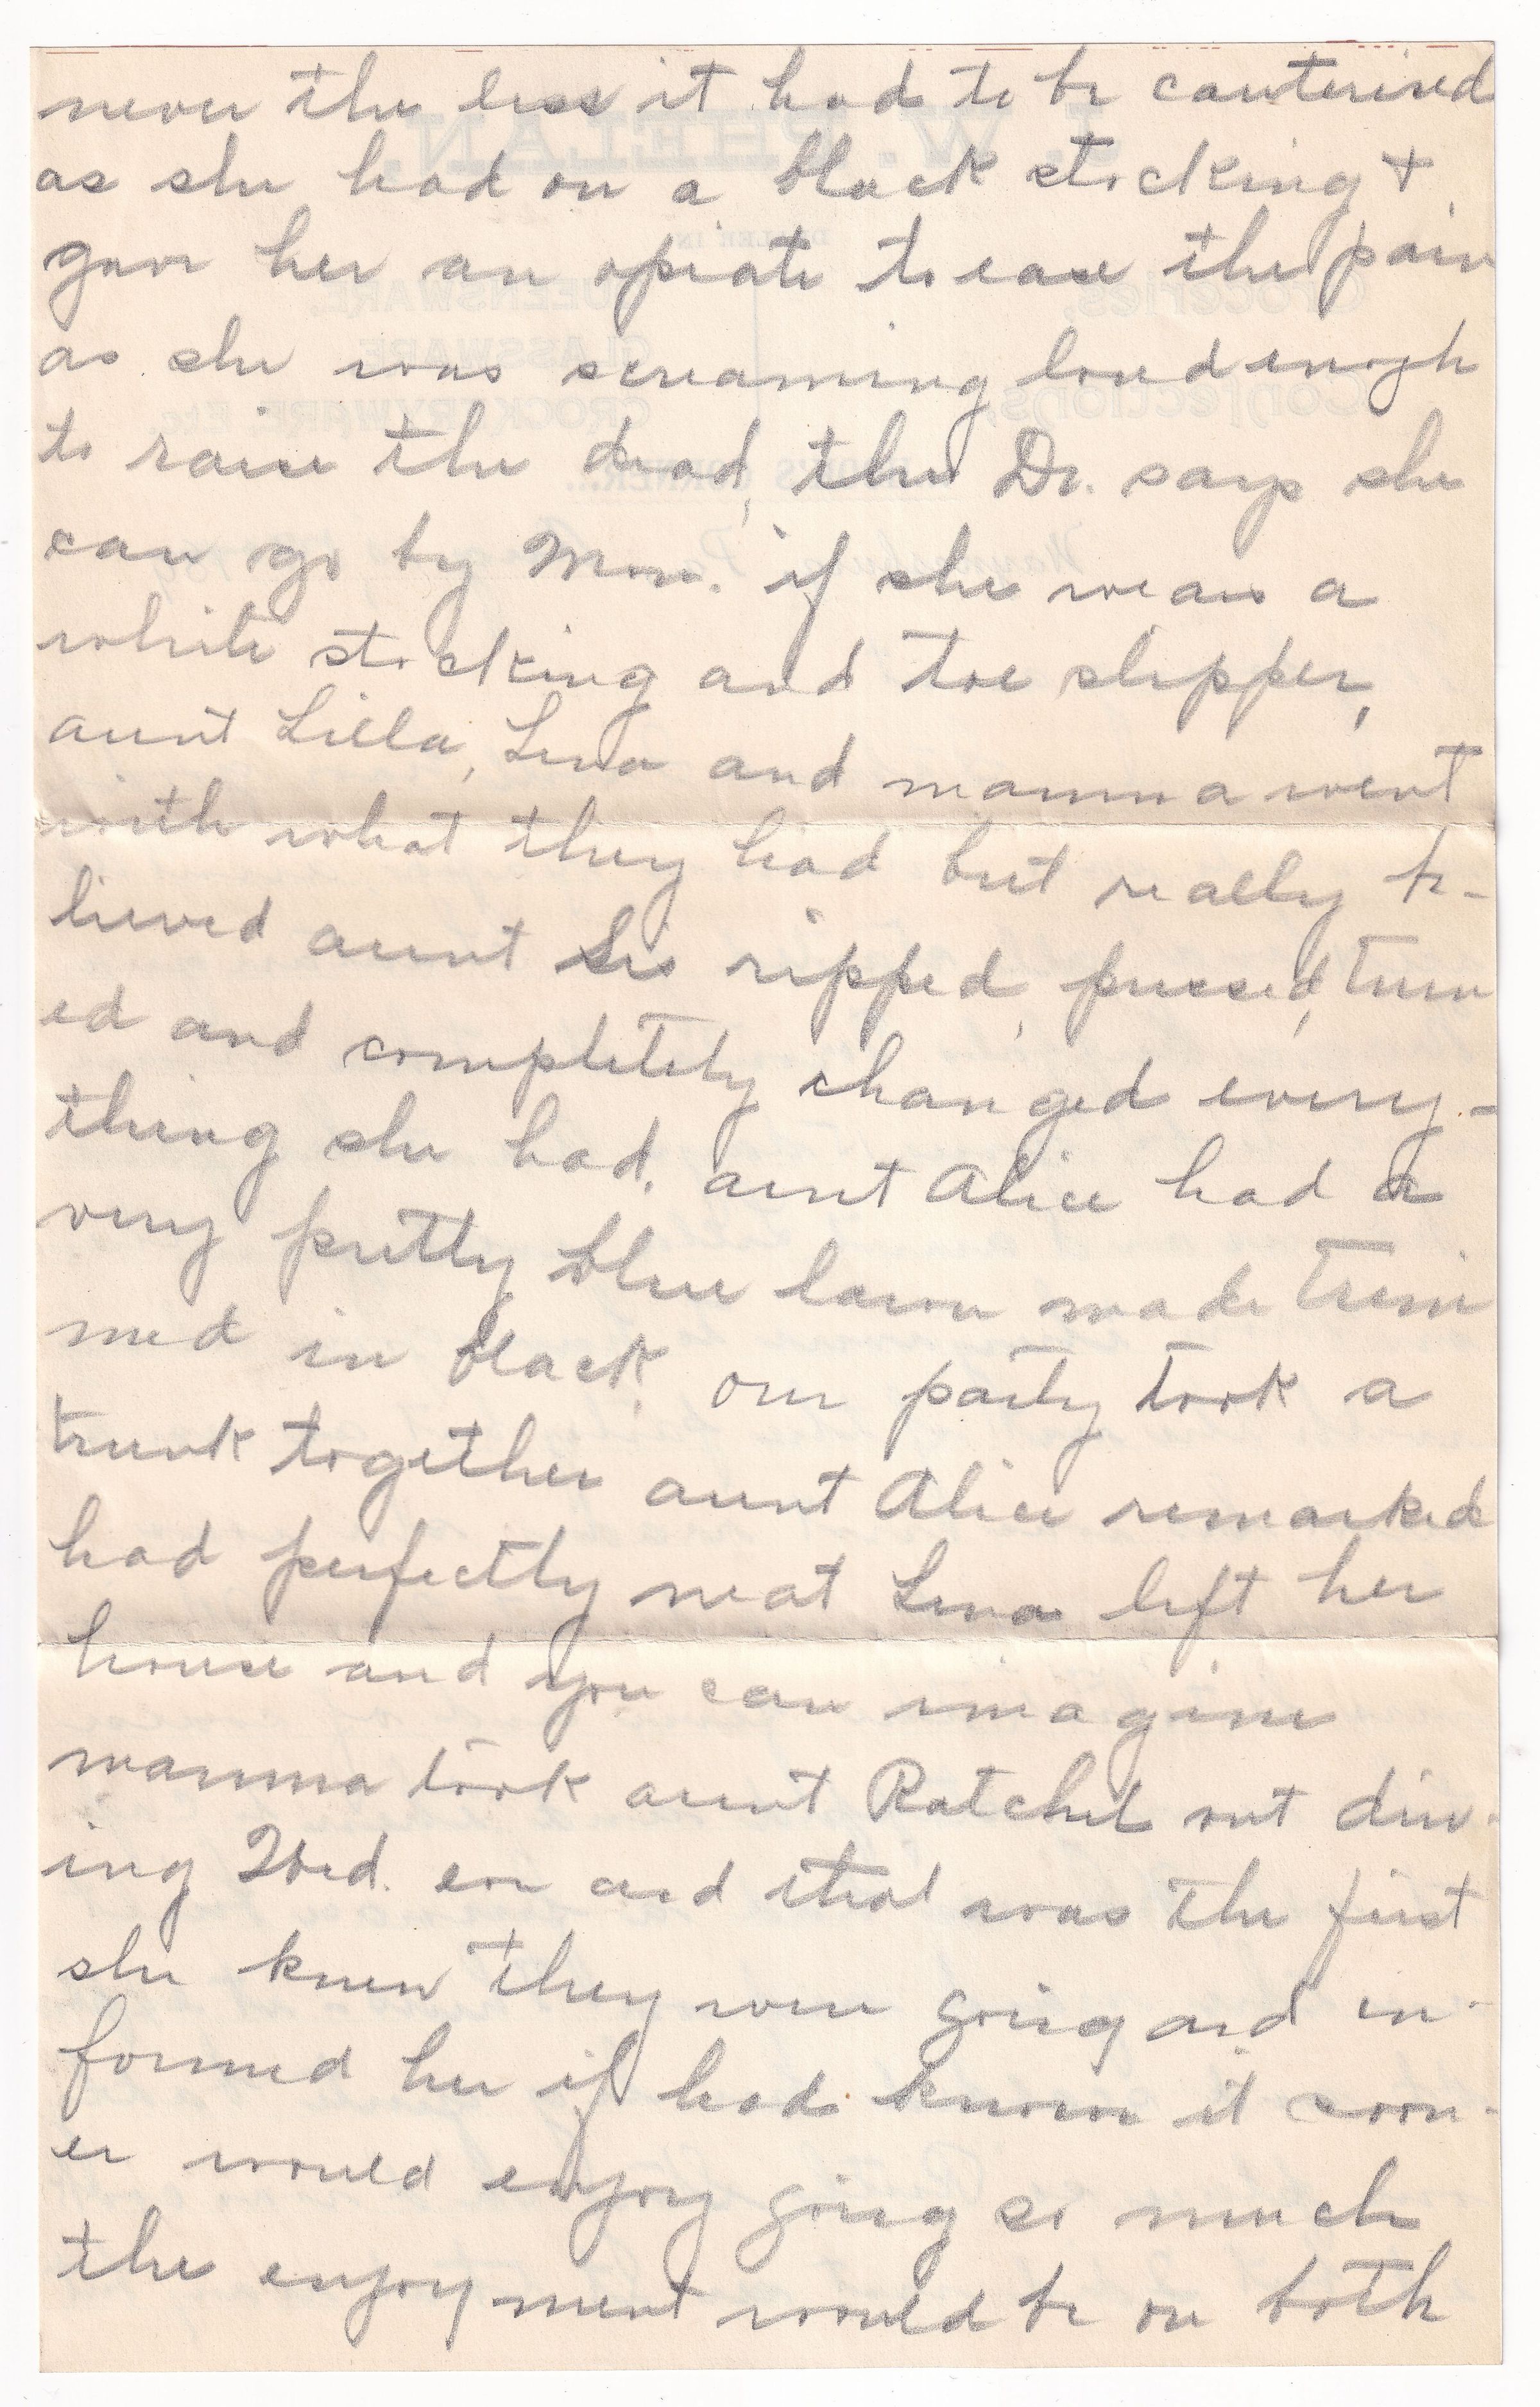 never the less it had to be cauterised
as she had on a black stocking +
gave her an opiate to ease the pain
as she was screaming loud enogh
to raise the dead, the Dr. says she
can go by Mon. if she wears a
white stocking and toe slipper,
aunt Lilla, Lena and mamma went
with what they had but really be-
lieved aunt Lis ripped, pressed, turn
ed and completely changed every-
thing she had. aunt Alice had a
very pretty blue lawn made trim
med in black. our party took a
trunk together aunt Alice remarked
had perfectly neat Lena left her
house and you can imagine
mamma took aunt Ratchel out driv-
ing Wed. eve and that was the first
she knew they were going and in-
formed her if had known it soon-
er would enjoy going so much
the enjoyment would be on both